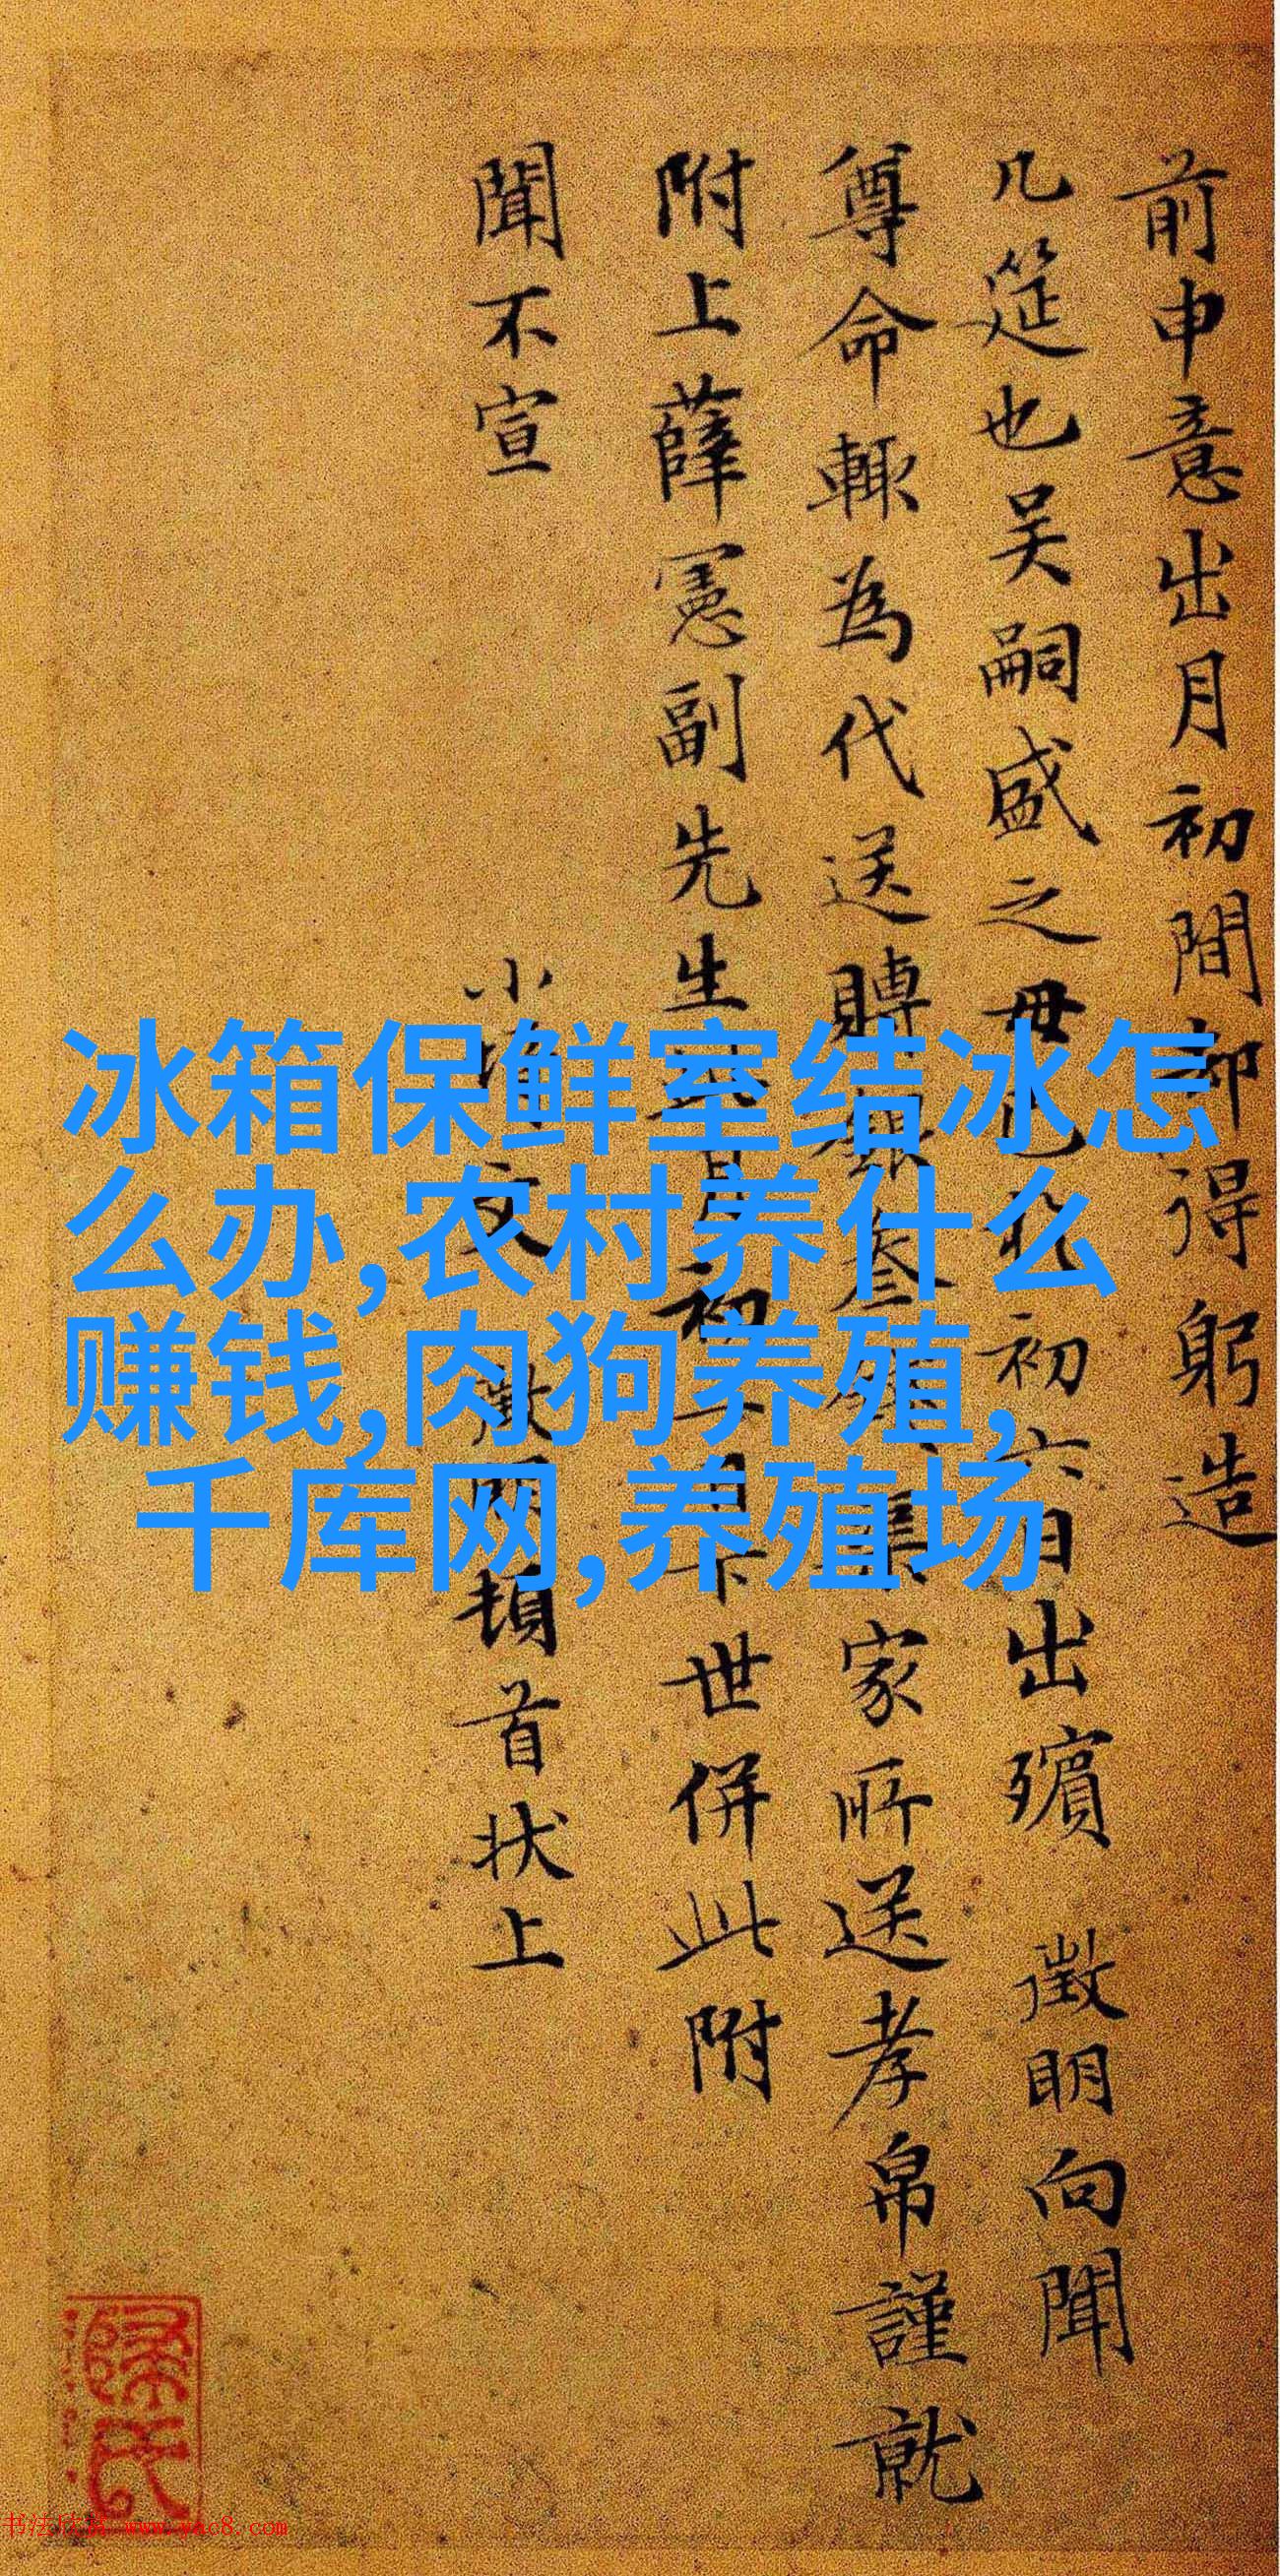 前申意出月初間得躬造
几筵也吴嗣盛之母也初六日出殯 徵明向聞
尊命輙為代送賻叁家所送孝帛謹就
附上薛憲副先生初日下世併此附
聞不宣
小文徵明頓首状上
冰箱保鲜室结冰怎
么办,农村养什么
赚钱,肉狗养殖,
千库网,养殖场
氏
书法欣赏 www.yac8.com